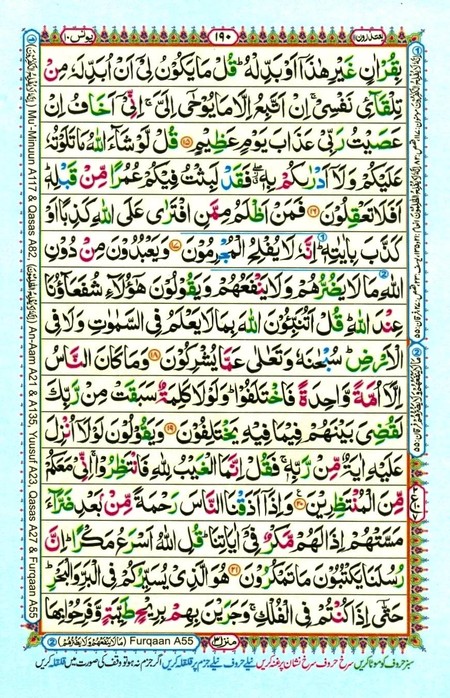 يعتذرون ١١
١٩٠
يونس ١٠
بِقُرْاٰنٍ غَيْرِ هٰذَاۤ اَوْ بَدِّلْهُ ؕ قُلْ مَا يَكُوْنُ لِيْۤ اَنْ اُبَدِّلَهٗ مِنْ
تِلْقَآئِ نَفْسِيْ ۚ اِنْ اَتَّبِعُ اِلَّا مَا يُوْحٰۤى اِلَيَّ ۚ اِنِّيْۤ اَخَافُ اِنْ
عَصَيْتُ رَبِّيْ عَذَابَ يَوْمٍ عَظِيْمٍ ۝١٥ قُلْ لَّوْ شَآءَ اللّٰهُ مَا تَلَوْتُهٗ
عَلَيْكُمْ وَلَاۤ اَدْرٰىكُمْ بِهٖ ۖؗ فَقَدْ لَبِثْتُ فِيْكُمْ عُمُرًا مِّنْ قَبْلِهٖ ؕ
اَفَلَا تَعْقِلُوْنَ ۝١٦ فَمَنْ اَظْلَمُ مِمَّنِ افْتَرٰى عَلَى اللّٰهِ كَذِبًا اَوْ
كَذَّبَ بِاٰيٰتِهٖ ؕ اِنَّهٗ لَا يُفْلِحُ الْمُجْرِمُوْنَ ۝١٧ وَيَعْبُدُوْنَ مِنْ دُوْنِ
اللّٰهِ مَا لَا يَضُرُّهُمْ وَلَا يَنْفَعُهُمْ وَيَقُوْلُوْنَ هٰۤؤُلَآءِ شُفَعَآؤُنَا
عِنْدَ اللّٰهِ ؕ قُلْ اَتُنَبِّئُوْنَ اللّٰهَ بِمَا لَا يَعْلَمُ فِي السَّمٰوٰتِ وَلَا فِي
الْاَرْضِ ؕ سُبْحٰنَهٗ وَتَعٰلٰى عَمَّا يُشْرِكُوْنَ ۝١٨ وَمَا كَانَ النَّاسُ
اِلَّاۤ اُمَّةً وَّاحِدَةً فَاخْتَلَفُوْا ؕ وَلَوْلَا كَلِمَةٌ سَبَقَتْ مِنْ رَّبِّكَ
لَقُضِيَ بَيْنَهُمْ فِيْمَا فِيْهِ يَخْتَلِفُوْنَ ۝١٩ وَيَقُوْلُوْنَ لَوْلَاۤ اُنْزِلَ
عَلَيْهِ اٰيَةٌ مِّنْ رَّبِّهٖ ۚ فَقُلْ اِنَّمَا الْغَيْبُ لِلّٰهِ فَانْتَظِرُوْا ۚ اِنِّيْ مَعَكُمْ
مِّنَ الْمُنْتَظِرِيْنَ ۝٢٠ وَاِذَاۤ اَذَقْنَا النَّاسَ رَحْمَةً مِّنْۢ بَعْدِ ضَرَّآءَ
مَسَّتْهُمْ اِذَا لَهُمْ مَّكْرٌ فِيْۤ اٰيَاتِنَا ؕ قُلِ اللّٰهُ اَسْرَعُ مَكْرًا ؕ اِنَّ
رُسُلَنَا يَكْتُبُوْنَ مَا تَمْكُرُوْنَ ۝٢١ هُوَ الَّذِيْ يُسَيِّرُكُمْ فِي الْبَرِّ وَالْبَحْرِ ؕ
حَتّٰۤى اِذَا كُنْتُمْ فِي الْفُلْكِ ۚ وَجَرَيْنَ بِهِمْ بِرِيْحٍ طَيِّبَةٍ وَّفَرِحُوْا بِهَا
Mu'-Minuun A117 & Qasas A82,
An-Aam A21 & A135, Yuusuf A23, Qasas A27 & Furqaan A55
② (مَا لَا يَنْفَعُهُمْ وَلَا يَضُرُّهُمْ) Furqaan A55
منزل ٣
سبز حروف کو موٹا کریں سرخ حروف سرخ نشان پر غنہ کریں نیلے حروف نیلے جزم پر قلقلہ کریں اگر جزم نہ ہو تو وقف کی صورت میں قلقلہ کریں